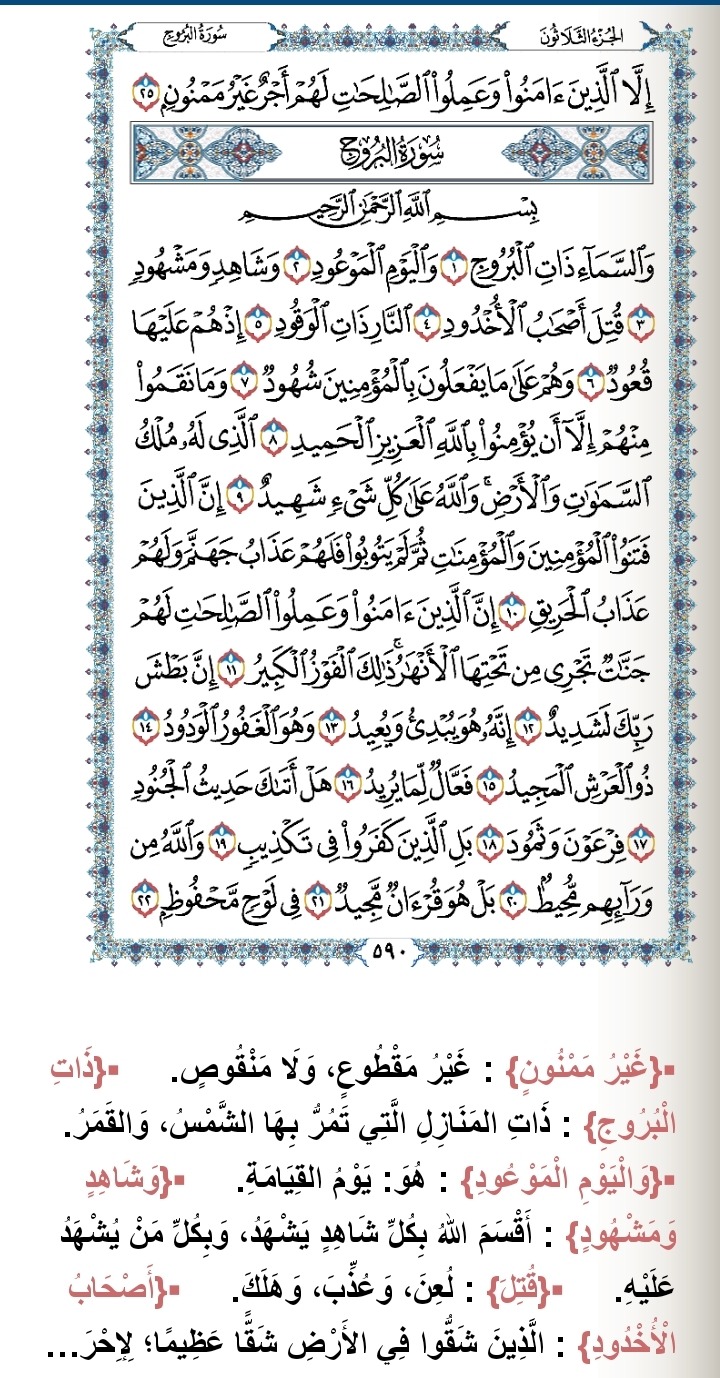 الجُزْءُ الثَّلَاثُونَ سُورَةُ البُرُوجِ
إِلَّا ٱلَّذِينَ ءَامَنُوا۟ وَعَمِلُوا۟ ٱلصَّـٰلِحَـٰتِ لَهُمْ أَجْرٌ غَيْرُ مَمْنُونٍۭ ٢٥
سُورَةُ البُرُوجِ
بِسْمِ ٱللَّهِ ٱلرَّحْمَـٰنِ ٱلرَّحِيمِ
وَٱلسَّمَآءِ ذَاتِ ٱلْبُرُوجِ ١ وَٱلْيَوْمِ ٱلْمَوْعُودِ ٢ وَشَاهِدٍ وَمَشْهُودٍ
٣ قُتِلَ أَصْحَـٰبُ ٱلْأُخْدُودِ ٤ ٱلنَّارِ ذَاتِ ٱلْوَقُودِ ٥ إِذْ هُمْ عَلَيْهَا
قُعُودٌ ٦ وَهُمْ عَلَىٰ مَا يَفْعَلُونَ بِٱلْمُؤْمِنِينَ شُهُودٌ ٧ وَمَا نَقَمُوا۟
مِنْهُمْ إِلَّآ أَن يُؤْمِنُوا۟ بِٱللَّهِ ٱلْعَزِيزِ ٱلْحَمِيدِ ٨ ٱلَّذِى لَهُۥ مُلْكُ
ٱلسَّمَـٰوَٰتِ وَٱلْأَرْضِ ۚ وَٱللَّهُ عَلَىٰ كُلِّ شَىْءٍ شَهِيدٌ ٩ إِنَّ ٱلَّذِينَ
فَتَنُوا۟ ٱلْمُؤْمِنِينَ وَٱلْمُؤْمِنَـٰتِ ثُمَّ لَمْ يَتُوبُوا۟ فَلَهُمْ عَذَابُ جَهَنَّمَ وَلَهُمْ
عَذَابُ ٱلْحَرِيقِ ١٠ إِنَّ ٱلَّذِينَ ءَامَنُوا۟ وَعَمِلُوا۟ ٱلصَّـٰلِحَـٰتِ لَهُمْ
جَنَّـٰتٌ تَجْرِى مِن تَحْتِهَا ٱلْأَنْهَـٰرُ ۚ ذَٰلِكَ ٱلْفَوْزُ ٱلْكَبِيرُ ١١ إِنَّ بَطْشَ
رَبِّكَ لَشَدِيدٌ ١٢ إِنَّهُۥ هُوَ يُبْدِئُ وَيُعِيدُ ١٣ وَهُوَ ٱلْغَفُورُ ٱلْوَدُودُ ١٤
ذُو ٱلْعَرْشِ ٱلْمَجِيدُ ١٥ فَعَّالٌ لِّمَا يُرِيدُ ١٦ هَلْ أَتَىٰكَ حَدِيثُ ٱلْجُنُودِ
١٧ فِرْعَوْنَ وَثَمُودَ ١٨ بَلِ ٱلَّذِينَ كَفَرُوا۟ فِى تَكْذِيبٍ ١٩ وَٱللَّهُ مِن
وَرَآئِهِم مُّحِيطٌۢ ٢٠ بَلْ هُوَ قُرْءَانٌ مَّجِيدٌ ٢١ فِى لَوْحٍ مَّحْفُوظٍۭ ٢٢
٥٩٠
▪{غَيْرُ مَمْنُونٍ} : غَيْرُ مَقْطُوعٍ، وَلَا مَنْقُوصٍ. ▪{ذَاتِ
الْبُرُوجِ} : ذَاتِ المَنَازِلِ الَّتِي تَمُرُّ بِهَا الشَّمْسُ، وَالقَمَرُ.
▪{وَالْيَوْمِ الْمَوْعُودِ} : هُوَ: يَوْمُ القِيَامَةِ. ▪{وَشَاهِدٍ
وَمَشْهُودٍ} : أَقْسَمَ اللهُ بِكُلِّ شَاهِدٍ يَشْهَدُ، وَبِكُلِّ مَنْ يُشْهَدُ
عَلَيْهِ. ▪{قُتِلَ} : لُعِنَ، وَعُذِّبَ، وَهَلَكَ. ▪{أَصْحَابُ
الْأُخْدُودِ} : الَّذِينَ شَقُّوا فِي الأَرْضِ شَقًّا عَظِيمًا؛ لِإِحْرَ...